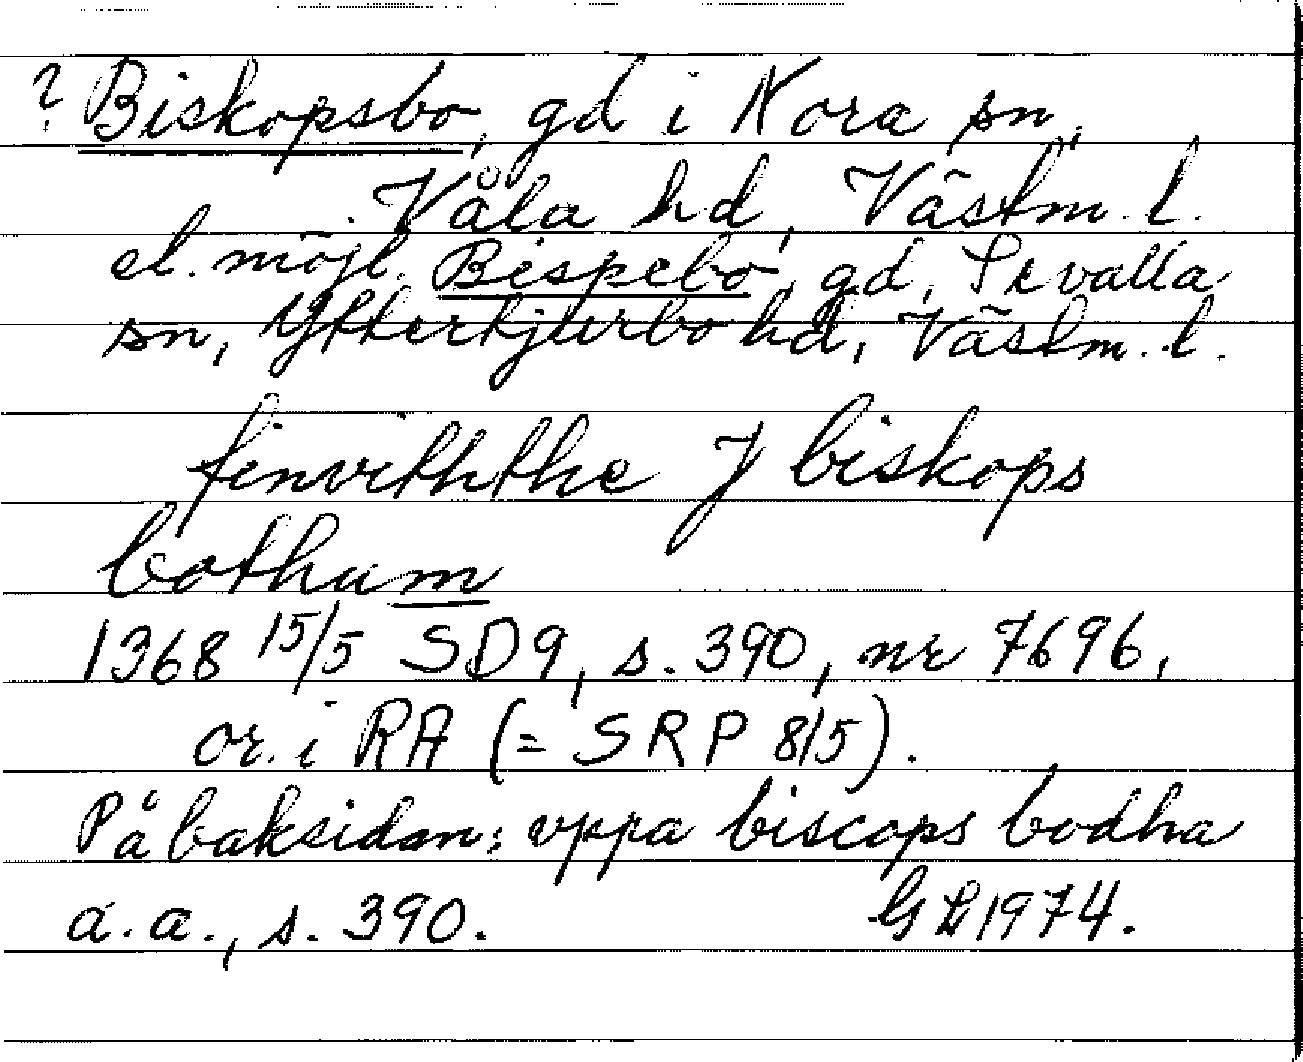 ? Biskopsbo, gd i Nora sn,
Våla hd, Västm. l.
el. möjl. Bispebo, gd, Sevalla
sn, Ytterkjurbo hd, Västm. l.
finviththe J biskops
bothum
1368 15/5 SD9, s. 390, nr 7696,
or. i RA (= SRP 815).
På baksidan: vppa biscops bodha
a.a., s. 390. GL 1974.